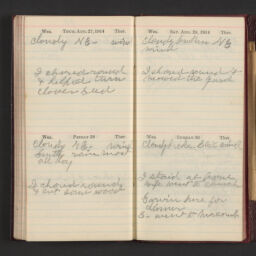 Wea. THUR. AUG. 27, 1914 Ther.
Cloudy N.E. wind
I chored round
& helped turn
clover seed
Wea. FRIDAY 28 Ther.
Cloudy N.E. wind
rain most
all day
I chored round
& cut some wood
Wea. SAT. AUG. 29, 1914 Ther.
Cloudy N.E.
wind
I chored round &
mowed the yard
Wea. SUNDAY 30 Ther.
Cloudy wind
I staid at home
wife went to church
Erwin here for
dinner
S. went to